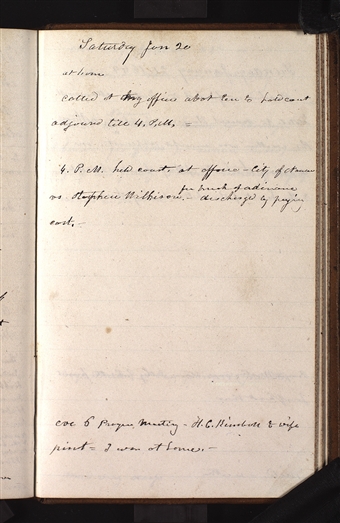 Saturday Jan 20
at home
called at my office abot ten to hold court
adjound till 4. P.M, =
4. P. M. held court. at office - City of
for breach of
vs Stephen Wilkison. - discharged by paying
cost. -
eve 6 Prayer Meeting - H. C. Kimball & wife
- I was at home. -